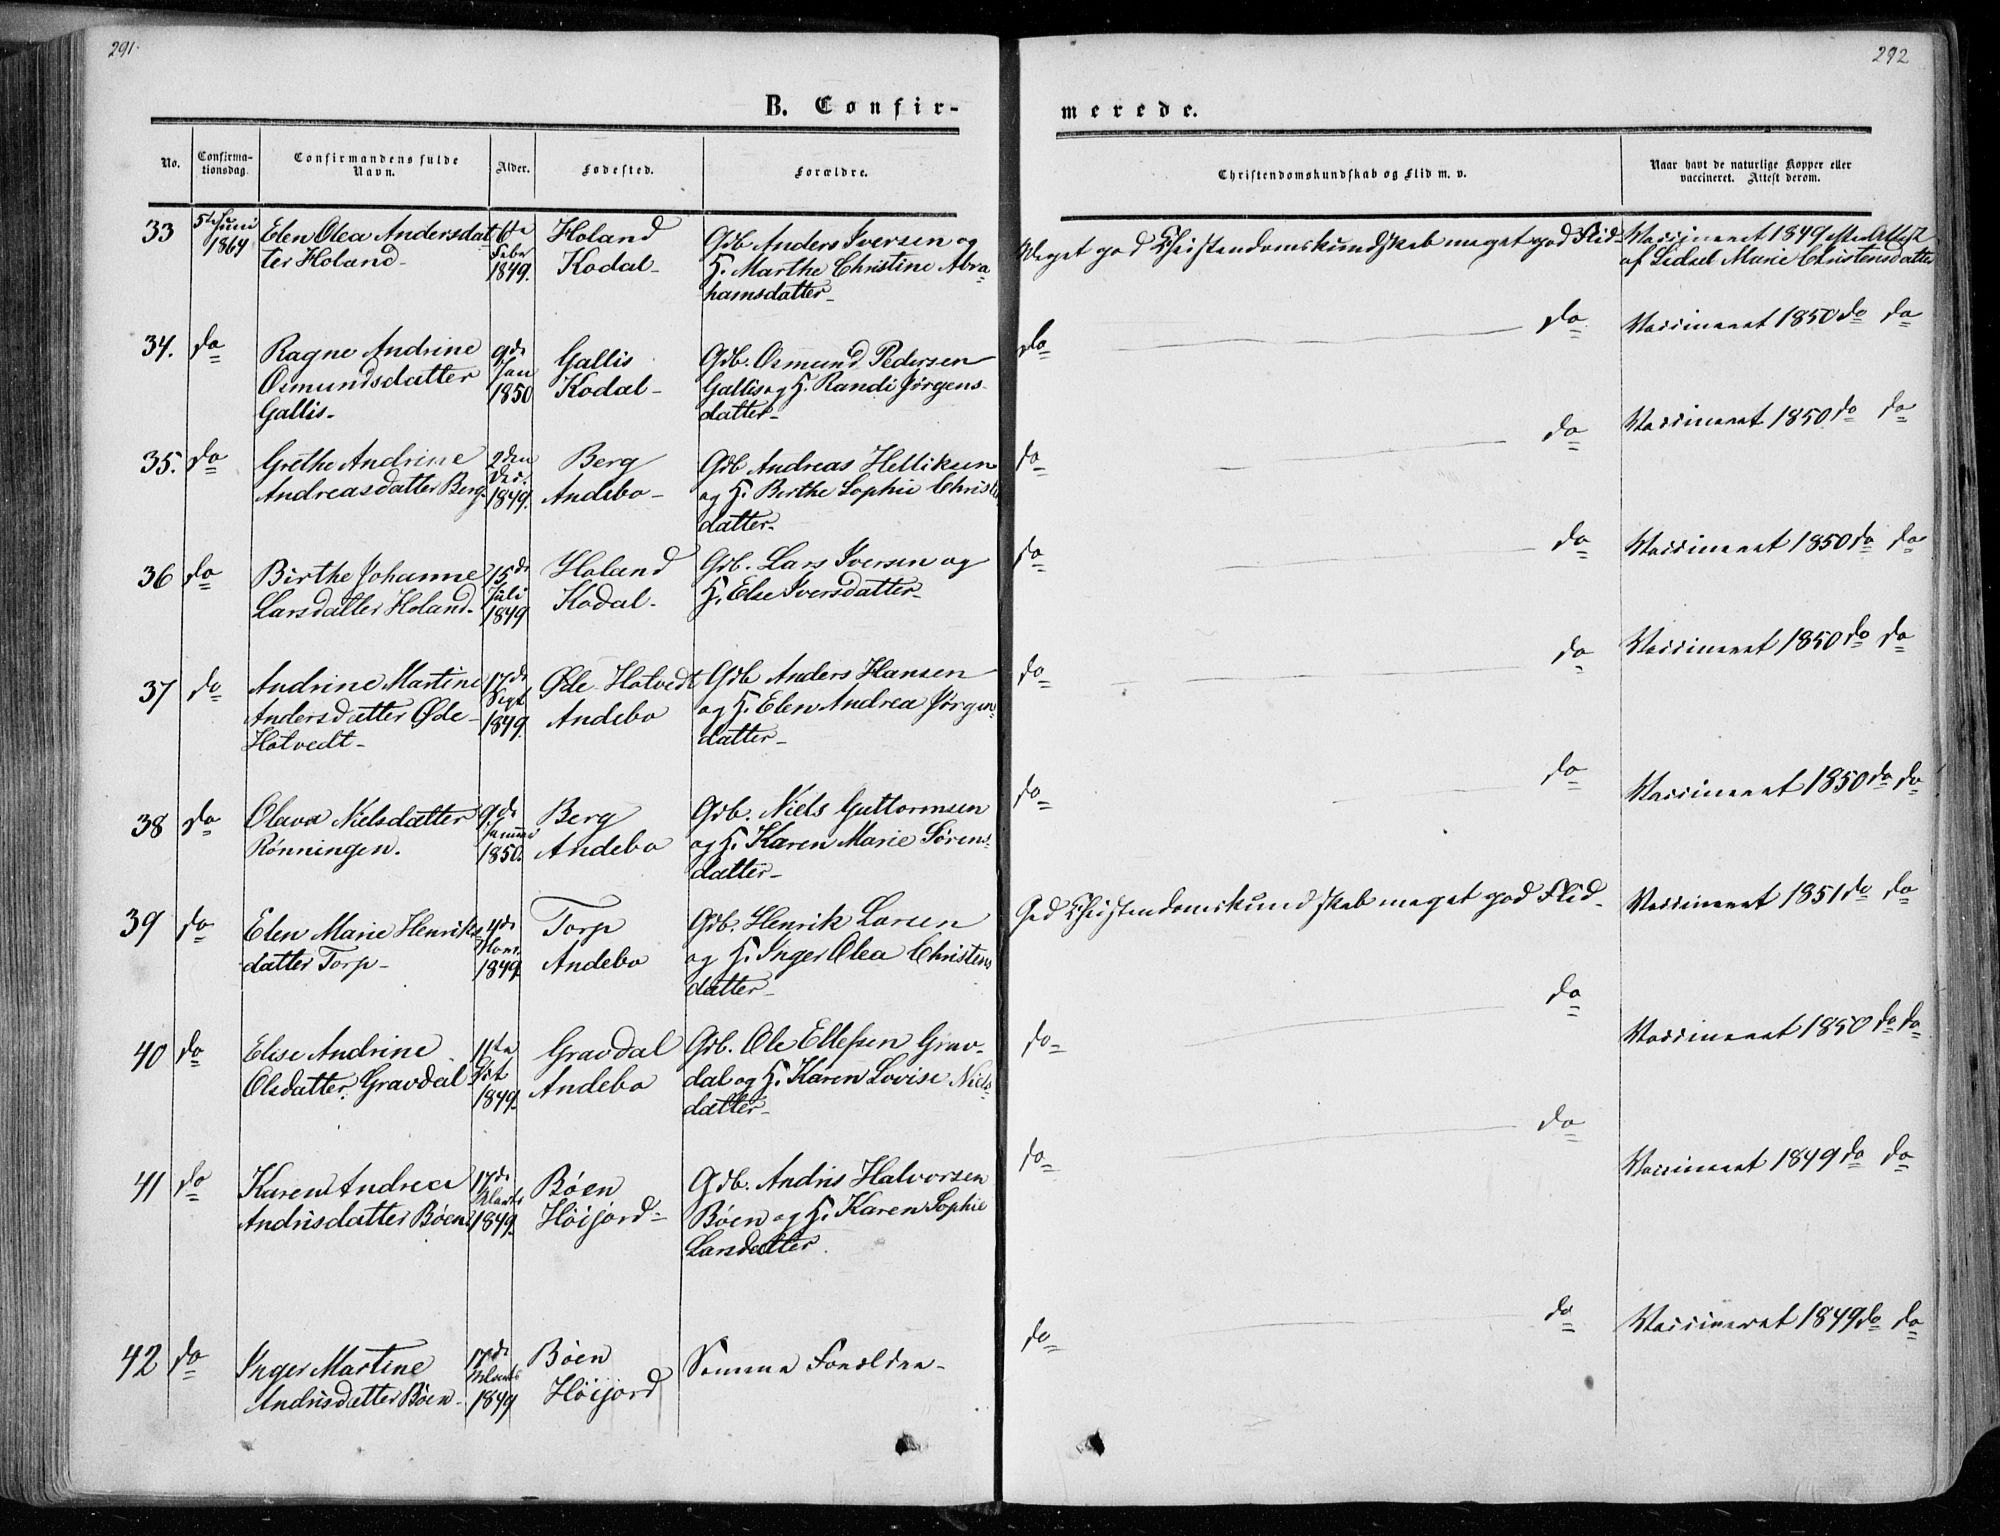 291.
292
B. Confir-
merede.
No.
Confirma-
tionsdag.
Confirmandens fulde
Navn.
Alder.
Fødested.
Forældre.
Christendomskundskab og Flid m. v.
Naar havt de naturlige Kopper eller
vaccineret. Attest derom.
33
5te Juni
1864
Elen Olea Andersdat
ter Holand-
Febr
1849.
Holand
Kodal-
Gdb Anders Iversen og
H. Marthe Christine Abra-
hamsdatter-
Meget god Christendomskundskab meget god Flid-
Vaccineret 1849 efter Attest
af Sidsel Marie Christensdatter
34.
do
Ragne Andrine
Osmundsdatter
Gallis-
9de
Jan
1850
Gallis
Kodal-
Gdb. Osmund Pedersen
Gallis og H. Randi Jørgens-
datter-
do
do
Vaccineret 1850 do do
35.
do
Grethe Andrine
Andreasdatter Berg-
2den
Dec.
1849.
Berg
Andebo-
Gdb Andreas Helliksen
og H. Berthe Sophie Christ
datter-
do
do
Vaccineret 1850 do do
36
do
Birthe Johanne
Larsdatter Holand-
15de
Juli
1849
Holand
Kodal-
Gdb. Lars Iversen og
H. Else Iversdatter-
do
do
Vaccineret 1850 do do
37
do
Andrine Martine
Andersdatter Øde-
Hotvedt-
17de
Sept
1849.
Øde Hotvedt
Andebo
Gdb Anders Hansen
og H. Elen Andrea Jørgen-
datter-
do
do
Vaccineret 1850 do do
38
do
Olava Nielsdatter
Rønningen.
9de
1850.
Berg
Andebo
Gdb. Niels Guttormsen
og H. Karen Marie Sørens-
datter-
do
do
Vaccineret 1850 do do
39
do
Elen Marie Henriks
datter Torp-
4de
1849
Torp
Andebo
Gdb. Henrik Larsen
og H. Inger Olea Christens
datter-
God Christendomskundskab meget god Flid-
Vaccineret 1851 do do
40
do
Elise Andrine
Olsdatter Gravdal-
11te
1849.
Gravdal
Andebo
Gdb. Ole Ellefsen Grav-
dal og H. Karen Lovise Niels-
datter-
do
do
Vaccineret 1850 do do
41
do
Karen Andrea
Andrisdatter Bøen
17de
Marts
1849.
Bøen
Høijord-
Gdb. Andris Halvorsen
Bøen og H. Karen Sophie
Larsdatter.
do
do
Vaccineret 1849 do do
42
do
Inger Martine
Andrisdatter Bøen-
17de
Marts
1849
Bøen
Høijord
Samme Forældre-
do
do
Vaccineret 1849 do do